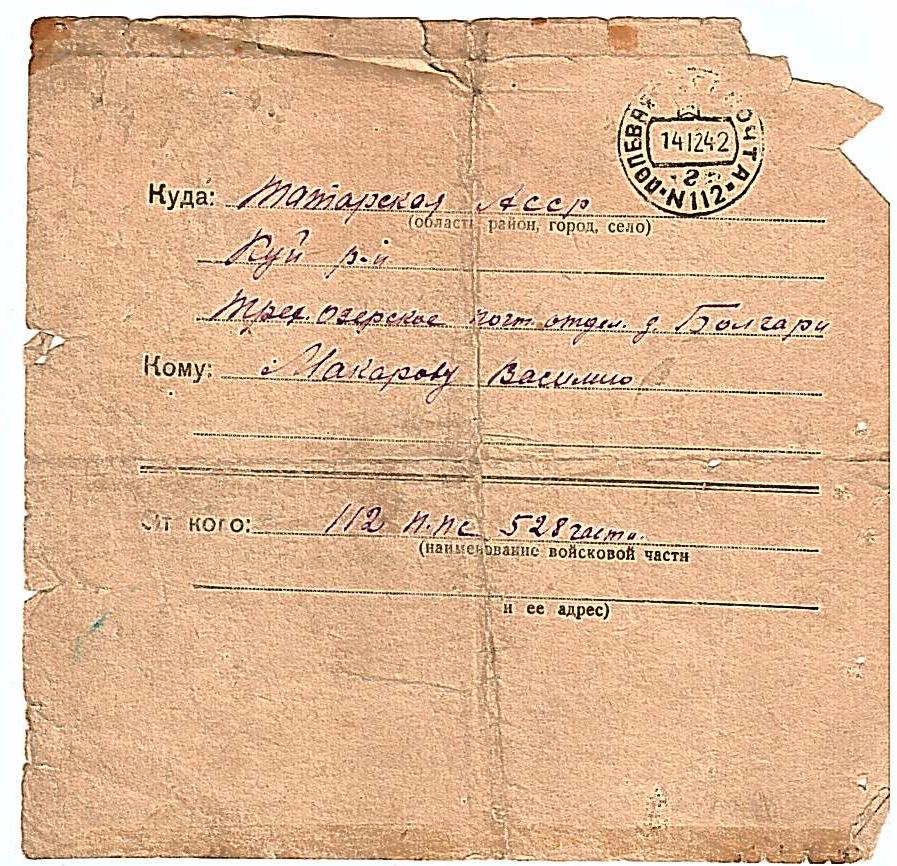 ПОЛЕВАЯ ПОЧТА
14 12 42
2
N112
Куда: Татарская Асср
(область, район, город, село)
Куй р-н
Трех озерское почт отдел. д. Болгари
Кому: Макарову Василию
От кого: 112 п.пс 528 части.
(наименование войсковой части
и ее адрес)